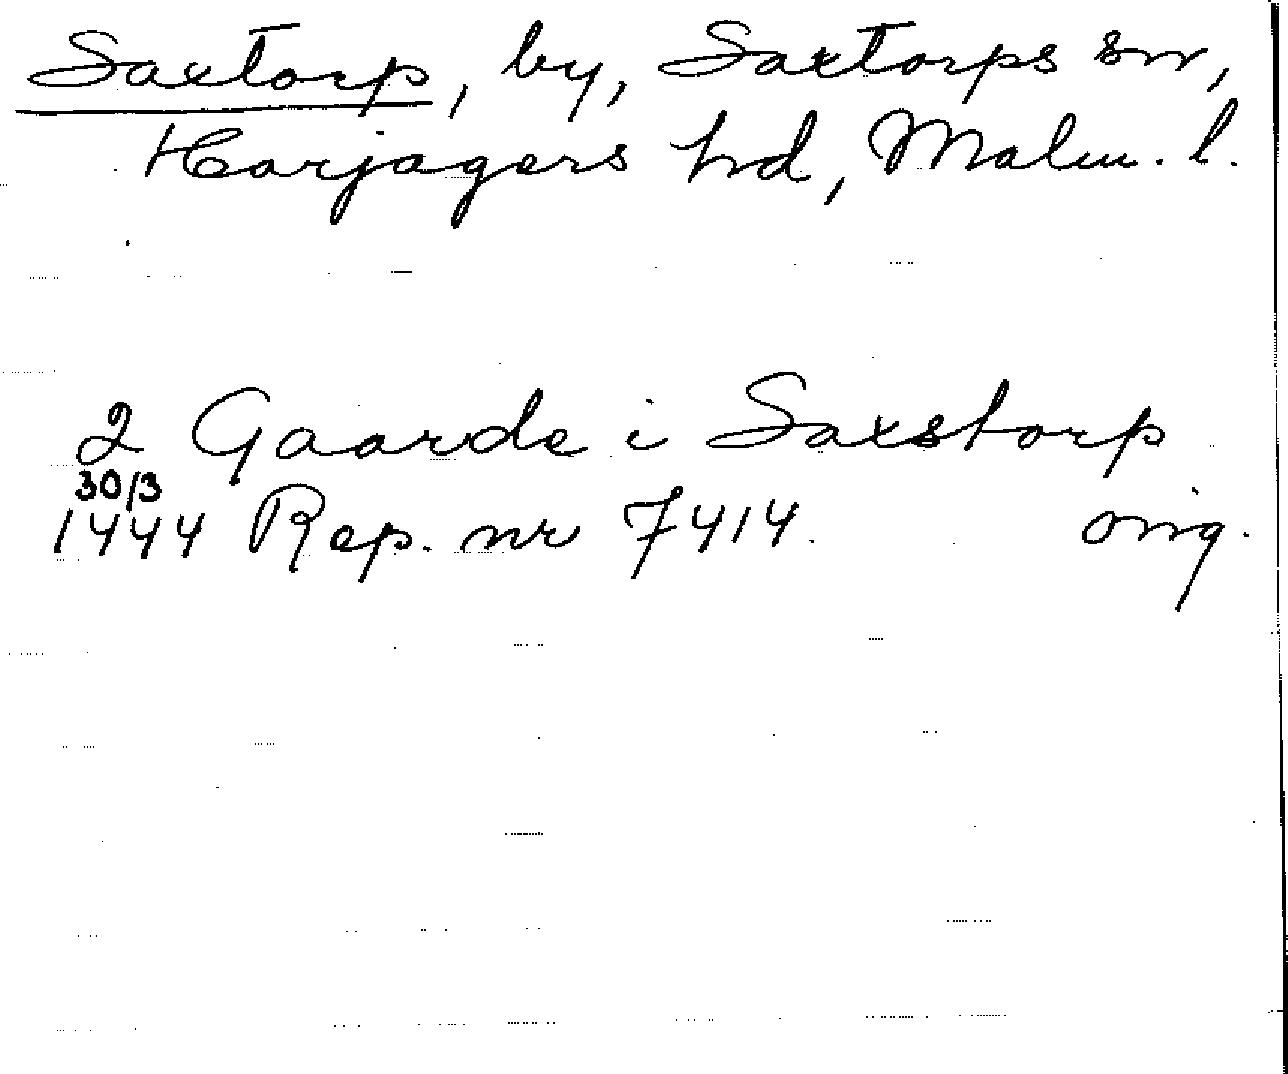 Saxtorp, by, Saxtorps sn,
Harjagers hd, Malm. l.
2 Gaarde i Saxstorp
30/3
1444 Rep. nr 7414. orig.